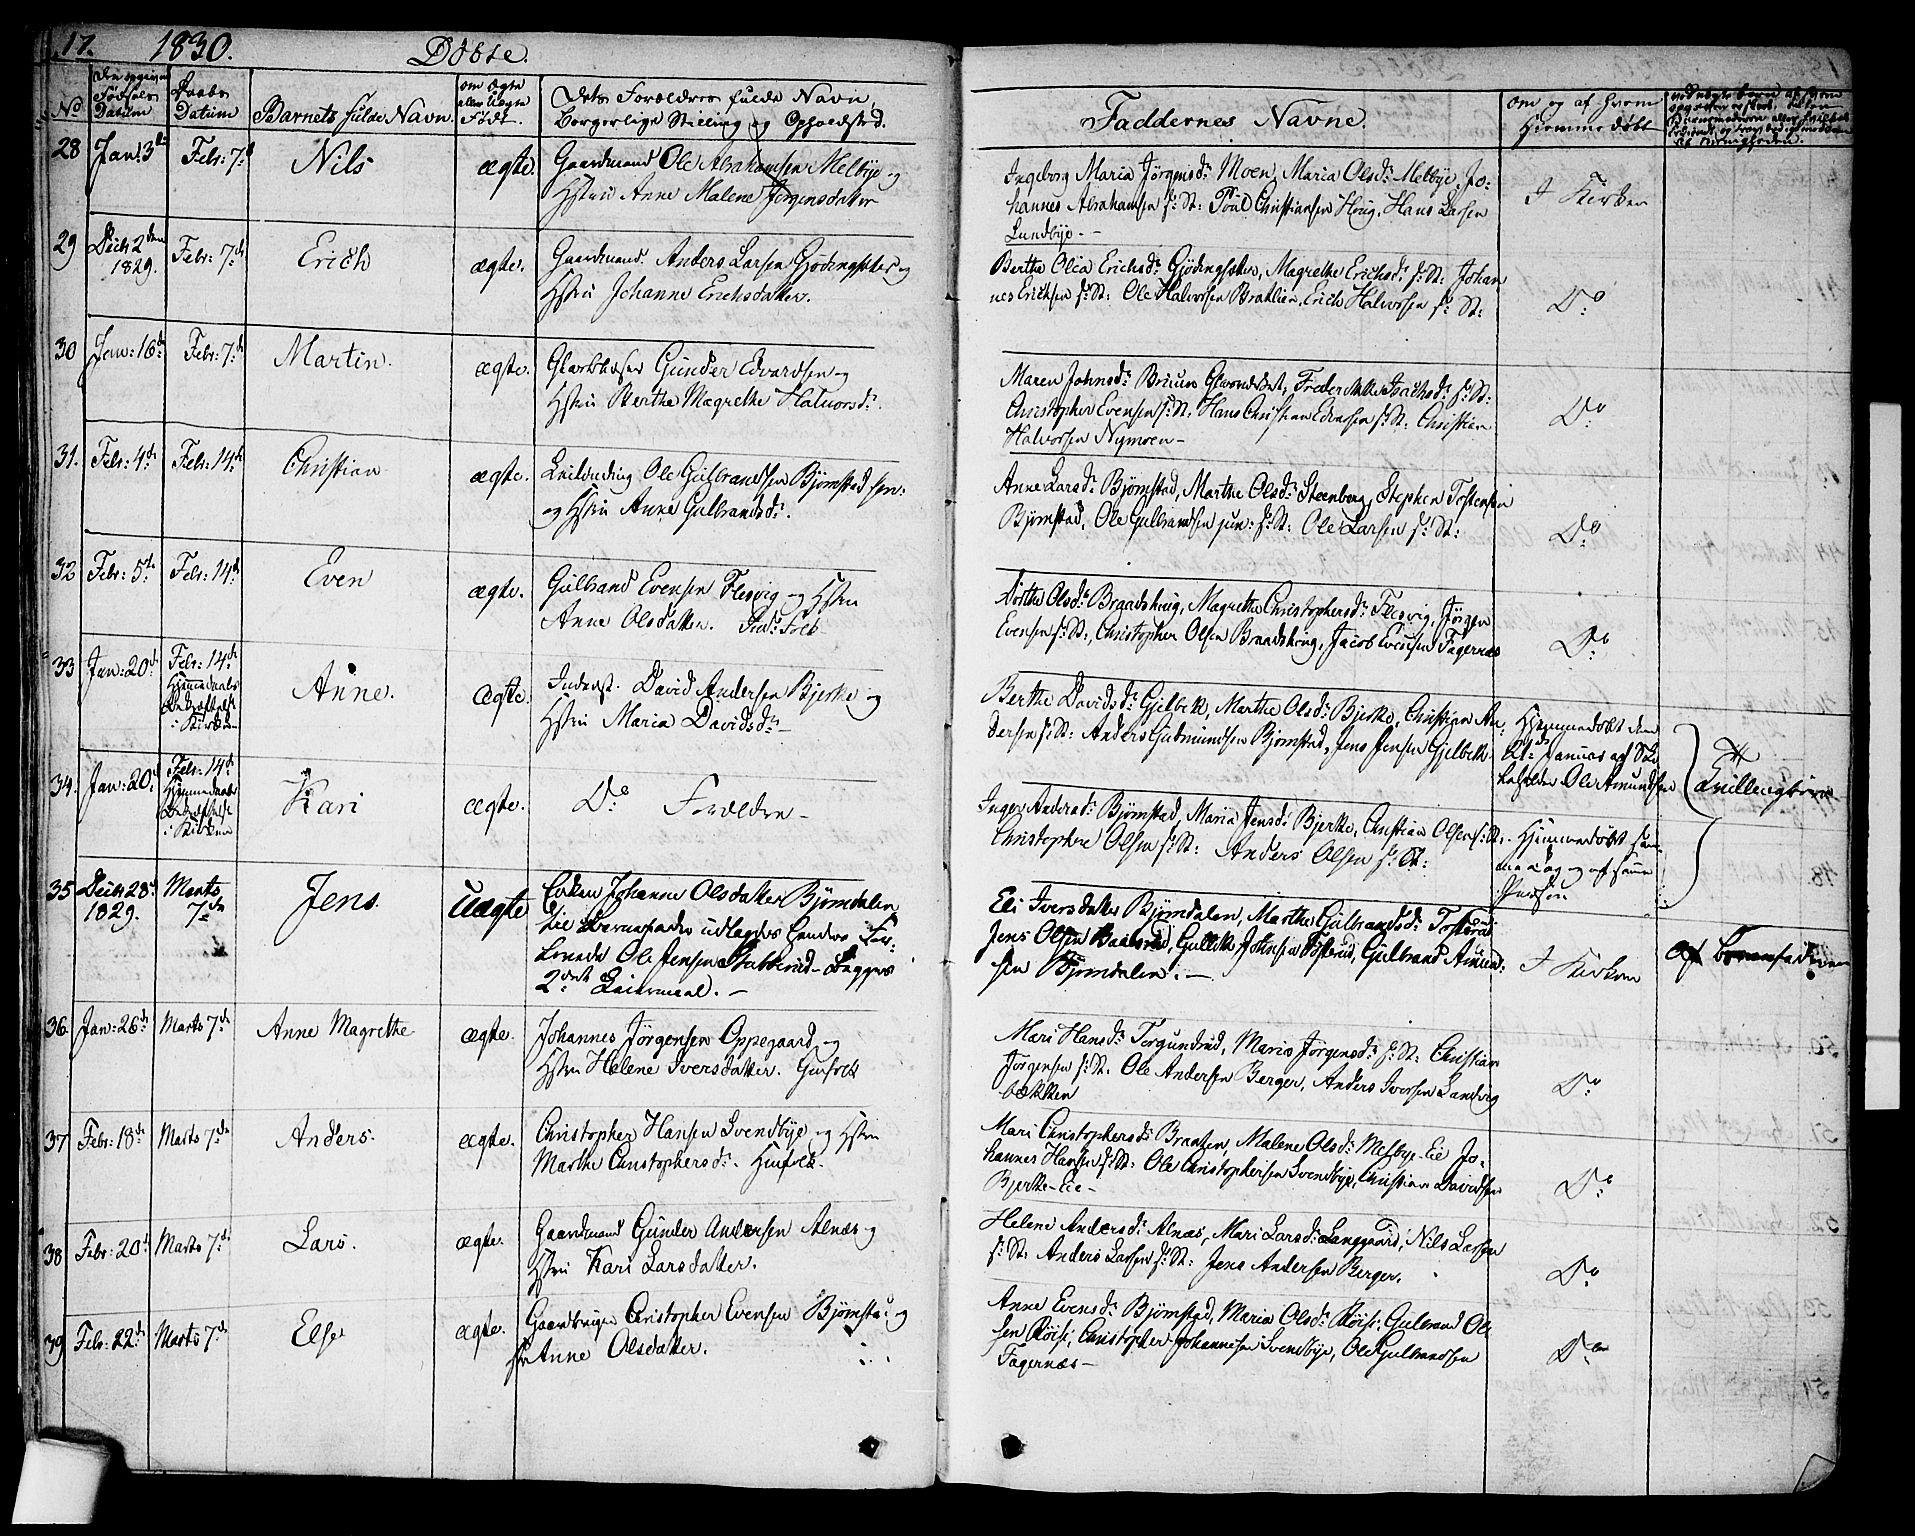 17. 1830. Döbte.
No
Födsels Datum
Daabs Datum
Barnets fulde Navn
om Ægte eller Uægte Födt
Dets Forældres fulde Navn,
borgerlige Stilling og Opholdsted.
Faddernes Navne.
om og af hvem
Hjemmedøbt
28 Jan: 3de Febr: 7de Nils ægte. Gaardmand Ole Abrahamsen Melbye og
Hstru Anne Malene Jörgensdatter
Ingeborg Maria Jörgensdr Moen, Maria Olsdr Melbye, Jo-
hannes Abrahamsen s: St: Poul Christiansen Houg, Hans Larsen
Lundbye.
I Kirken
29 Decb 2den 1829. Febr: 7de Erich ægte. Gaardmand Anders Larsen Gjödingsæter og
Hstru Johanne Erichsdatter.
Berthe Olea Erichsdr Gjödingsæter, Magrethe Erichsdr s: St: Johan
nes Erichsen s: St: Ole Halvorsen Bratlien, Erich Halvorsen s: St:
Do
30 Jan: 16de Febr: 7de Martin. ægte. Gunder Edvardsen og
Hstru Berthe Magrethe Halvorsdr.
Maren Johnsdr Fredrikke Isachsdr s: St:
Christopher Evensen s: St: Hans Christian Edvarsen s: St: Christian
Halvorsen Nymoen
Do
31. Febr: 4de Febr: 14de Christian ægte. Ole Gulbrandsen Björnstad sen:
og Hstru Anne Gulbrandsdr.
Anne Larsdr Björnstad, Marthe Olsdr Steenberg, Stephen Tostensen
Björnstad, Ole Gulbrandsen jun: s: St: Ole Larsen s: St:
Do
32 Febr: 5te Febr: 14de Even ægte. Gulbrand Evensen Flesvig og Hstru
Anne Olsdatter. Inds: Folk
Dorthe Olsdr Braadshoug, Magrethe Christophersdr Flesvig, Jörgen
Evensen s: St:, Christopher Olsen Braadshoug, Jacob Evensen Fagernæs
Do
33 Jan: 20de Febr: 14de Hjemmedaabs i Kirken Anne. ægte. Inderst. David Andersen Bjerke og
Hstru Maria Davidsdr
Berthe Davidsdr Gjelbek, Marthe Olsdr Bjerke, Christian An-
dersen s: St: Anders Gudmundsen Björnstad, Jens Jensen Gjelbek
Hjemmedöbt den
21de Januar af
Ole Amundsen
Tvillingbörn
34. Jan: 20de Febr: 14de Hjemmedaabs i Kirken Kari ægte. Do Forældre
Inger Andersdr Björnstad, Maria Jensdr Bjerke, Christian Olsen s: St:
Christophere Olsen s: St: Anders Olsen s: St:
Hjemmedöbt sam-
me Dag og af samme
Person
35 Decb 28de 1829. Marts 7de Jens. Uægte Johanne Olsdatter Björndalen
til Barnefader udlagdes hendes For-
lovede Ole Jensen Stabberud - Begges
2det Leiermaal.
Eli Iversdatter Björndalen, Marthe Gulbrandsdr Tosterud
Jens Olsen Gullik Johnsen Tosterud, Gulbrand Amund-
sen Björndalen.
I Kirken
Af Barnefaderen
36. Jan: 26de Marts 7de Anne Magrethe ægte. Johannes Jörgensen Oppegaard og
Hstru Helene Iversdatter. Huusfolk
Mari Hansdr Torgundrud, Maria Jörgensdr s: St: Christian
Jörgensen s: St: Ole Andersen Berger, Anders Iversen Landvig
bækken
Do
37 Febr: 18de Marts 7de Anders. ægte. Christopher Hansen Svendbye og Hstru
Marthe Christophersdr. Huusfolk.
Mari Christophersdr Braaten, Malene Olsdr Melbye-Eie Jo-
hannes Hansen s: St: Ole Christophersen Svendbye, Christian Davidsen
Bjerke-Eie
Do
38 Febr: 20de Marts 7de Lars. ægte. Gaardmand Gunder Andersen Alnæs og
Hstru Kari Larsdatter.
Helene Andersdr Alnæs, Mari Larsdr Langgaard, Nils Larsen
s: St: Anders Larsen s: St: Jens Andersen Berger.
Do
39 Febr: 22de Marts 7de Else ægte. Gaardbruger Christopher Evensen Björnstad og
Hstr Anne Olsdatter.
Anne Evensdr Björnstad, Maria Olsdr Röise, Gulbrand Ol-
sen Röise, Christopher Johannesen Svendbye, Ole Gulbrandsen
Fagernæs
Do